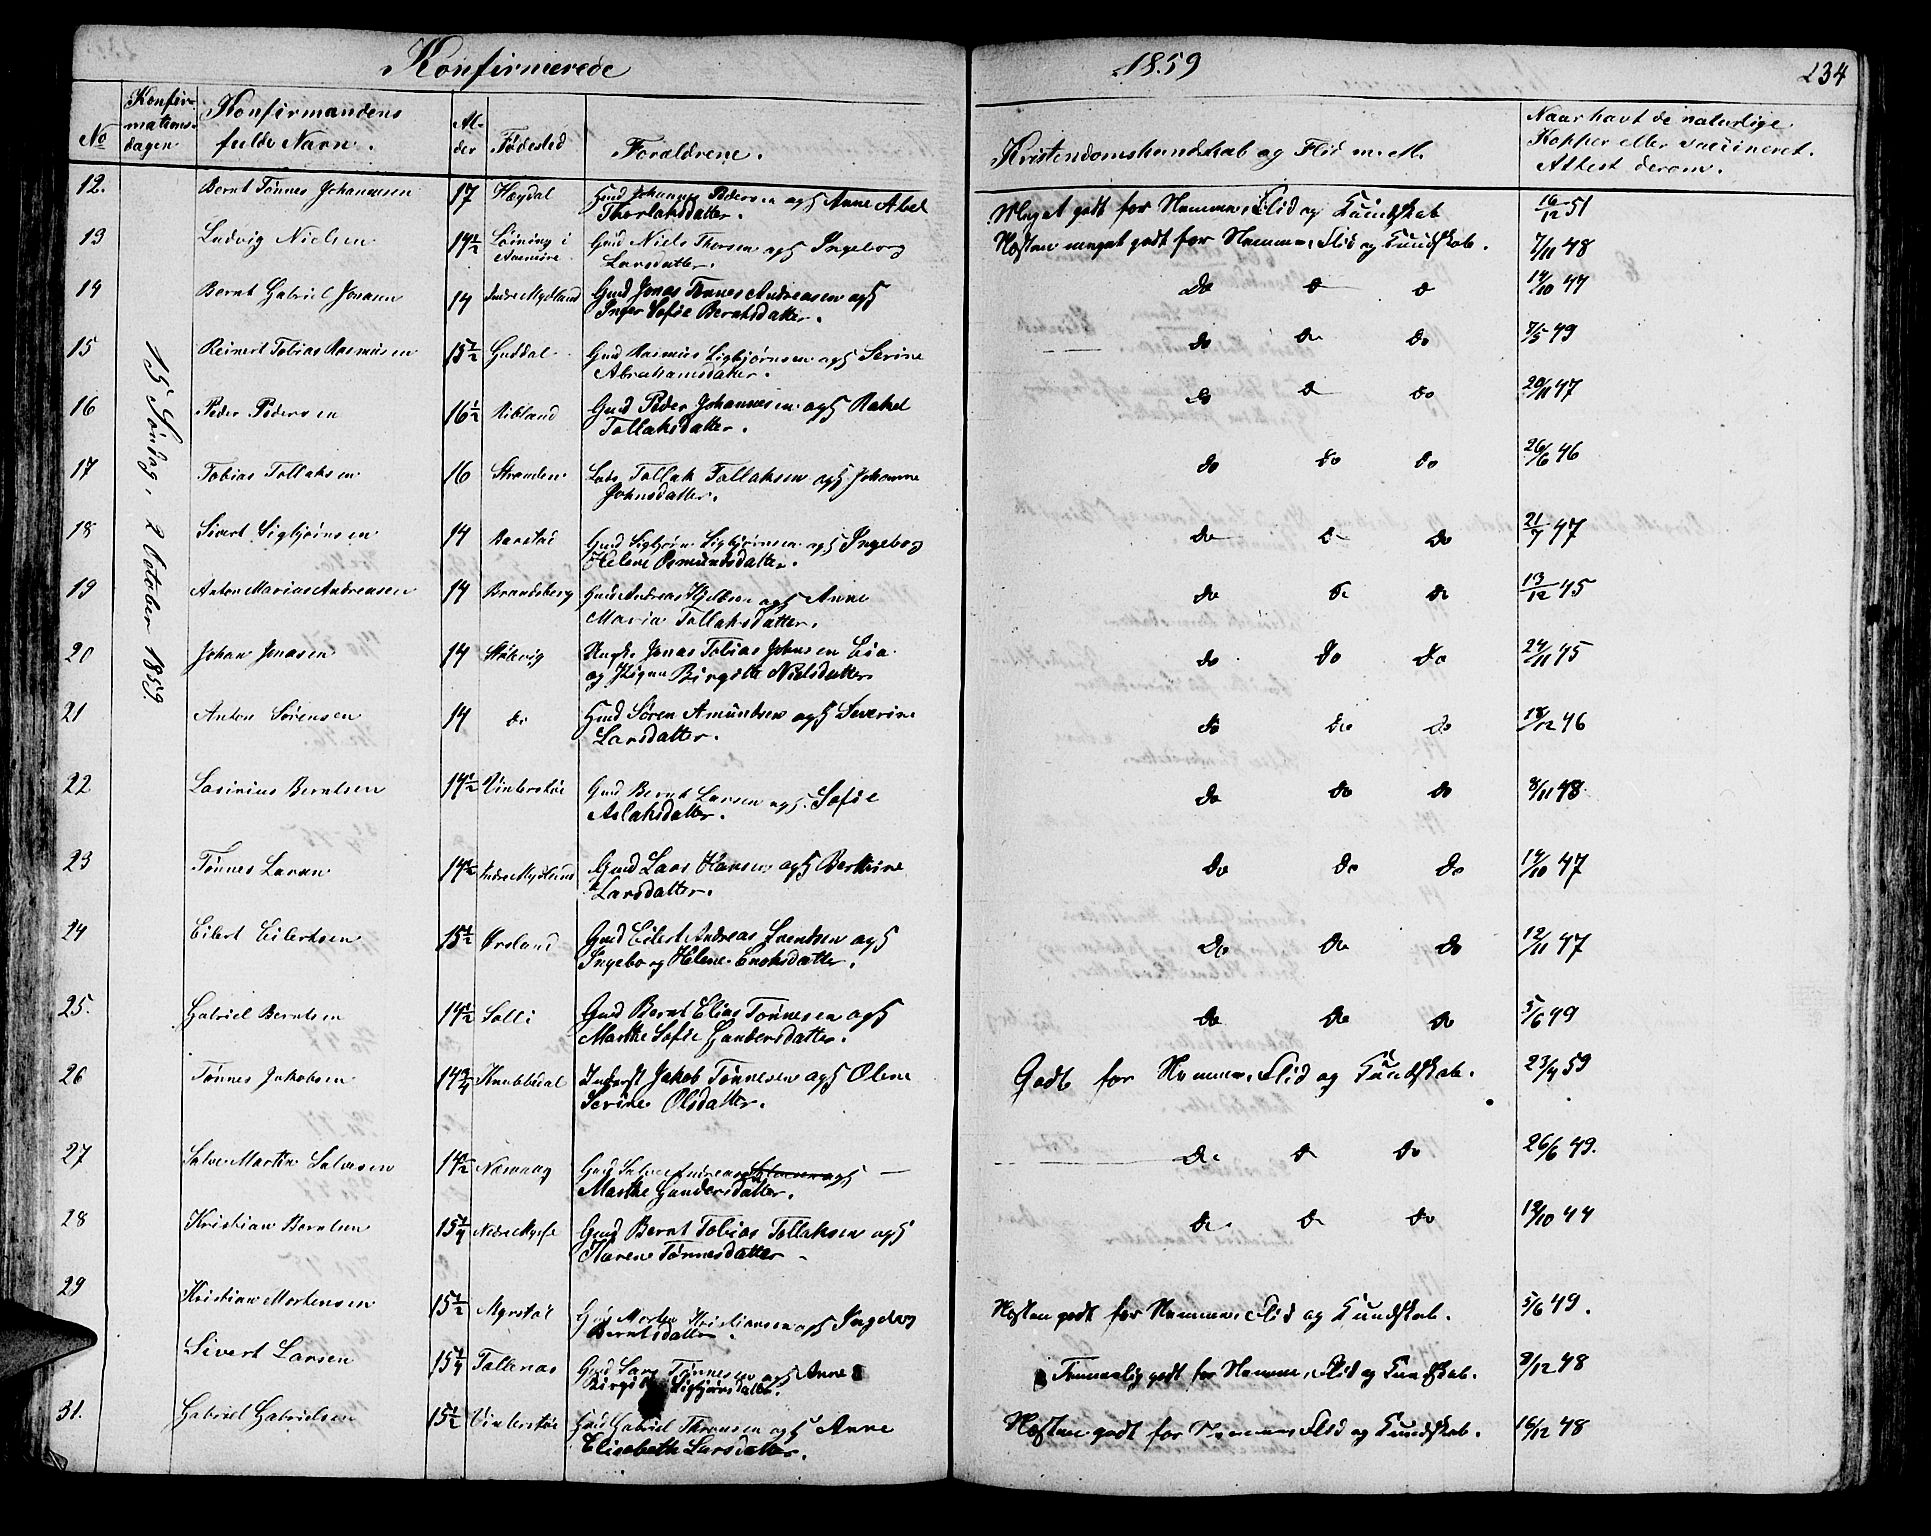 Konfirmerede
1859
234
No
Konfir-
mations-
dagen
Konfirmandens
fulde Navn.
Al-
der
Fødested
Forældrene.
Kristendomskundskab og Flid m. M.
Naar havt de naturlige
Kopper eller vaccineret.
Attest derom.
15 Søndag, 2 October 1859.
12. Bernt Tønnes Johannesen 17 Hægdal Gmd Johannes Pedersen ogH Anne Abel
Thorlaksdatter. Meget godt for Nemme, Flid og Kundskab 16/12 51
13 Ludvig Nielsen 14 1/2 Leining i Gmd Niels Thorsen ogH Ingeborg
Larsdatter. Næsten meget godt for Nemme, Flid og Kundskab. 7/11 48
14 Bernt Gabriel Jonasen 14 Indre Mydland Gmd Jonas Tønnes Andreasen ogH
Inger Sofie Berntsdatter. do do do 14/10 47
15 Reinert Tobias Rasmussen 15 1/2 Guddal Gmd Rasmus Sigbjørnsen ogH Serine
Abrahamsdatter. do do do 7/5 49
16 Peder Pedersen 16 1/2 Ribland Gmd Peder Johannesen ogH Rakel
Tollaksdatter. do do do 20/11 47
17 Tobias Tollaksen 16 Stranden Lods Tollak Tollaksen ogH Johanne
Johnsdatter. do do do 26/6 46
18 Sivert Sigbjørnsen 14 Barstad Gmd Sigbjørn Sigbjørnsen ogH Ingeborg
Helene Osmundsdatter. do do do 21/7 47
19 Anton Marius Andreasen 14 Brandsberg Gmd Andreas ogH Anne
Maria Tollaksdatter. do do do 13/12 45
20 Johan Jonasen 14 Støkvig Ungk. Jonas Tobias Johnsen Eia
og Pigen Birgitte Nielsdatter do do do 24/11 45
21 Anton Sørensen 14 do Gmd Søren Amundsen ogH Severine
Larsdatter. do do do 18/12 46
22 Lasinius Berntsen 14 1/2 Vinterstø Gmd Bernt Larsen ogH. Sofie
Aslaksdatter. do do do 8/11 48.
23 Tønnes Larsen 14 1/2 Indre Mydland Gmd Lars Hansen ogH Berthine
Larsdatter. do do do 14/10 47
24 Eilert Eilertsen 15 1/2 Ørsland Gmd Eilert Andreas Svendsen ogH
Ingeborg Helene Enoksdatter. do do do 12/11 47
25. Gabriel Berntsen 14 1/2 Solli Gmd Bernt Elias Tønnesen ogH
Marthe Sofie Gundersdatter. do do do 5/6 49
26 Tønnes Jakobsen 14 3/4 Knubbedal Inderst Jakob Tønnesen ogH Olene
Serine Olsdatter. Godt for Nemme, Flid og Kundskab. 23/9 59
27 Salve Martin Salvesen 14 1/2 Gmd Salve Andreas ogH
Marthe Gundersdatter. do do do 26/6 49.
28 Kristian Berntsen 15 1/4 Nedre Mysse Gmd Bernt Tobias Tollaksen ogH
Karen Tønnesdatter do do do 19/10 44
29 Kristian Mortensen 15 1/2 Myrstøl Gmd Morten Kristiansen ogH Ingeborg
Berntsdatter. Næsten godt for Nemme, Flid og Kundskab. 5/6 49.
Sivert Larsen 15 1/4 Tollenas Gmd Lars Tønnesen ogH Anne
Birgitte Sigbjørnsdatter. Temmelig godt for Nemme, Flid og Kundskab. 8/12 48
31. Gabriel Gabrielsen 15 1/2 Vinterstø Gmd Gabriel Thronsen ogH Anne
Elisabeth Larsdatter. Næsten godt for Nemme, Flid og Kundskab. 16/12 48